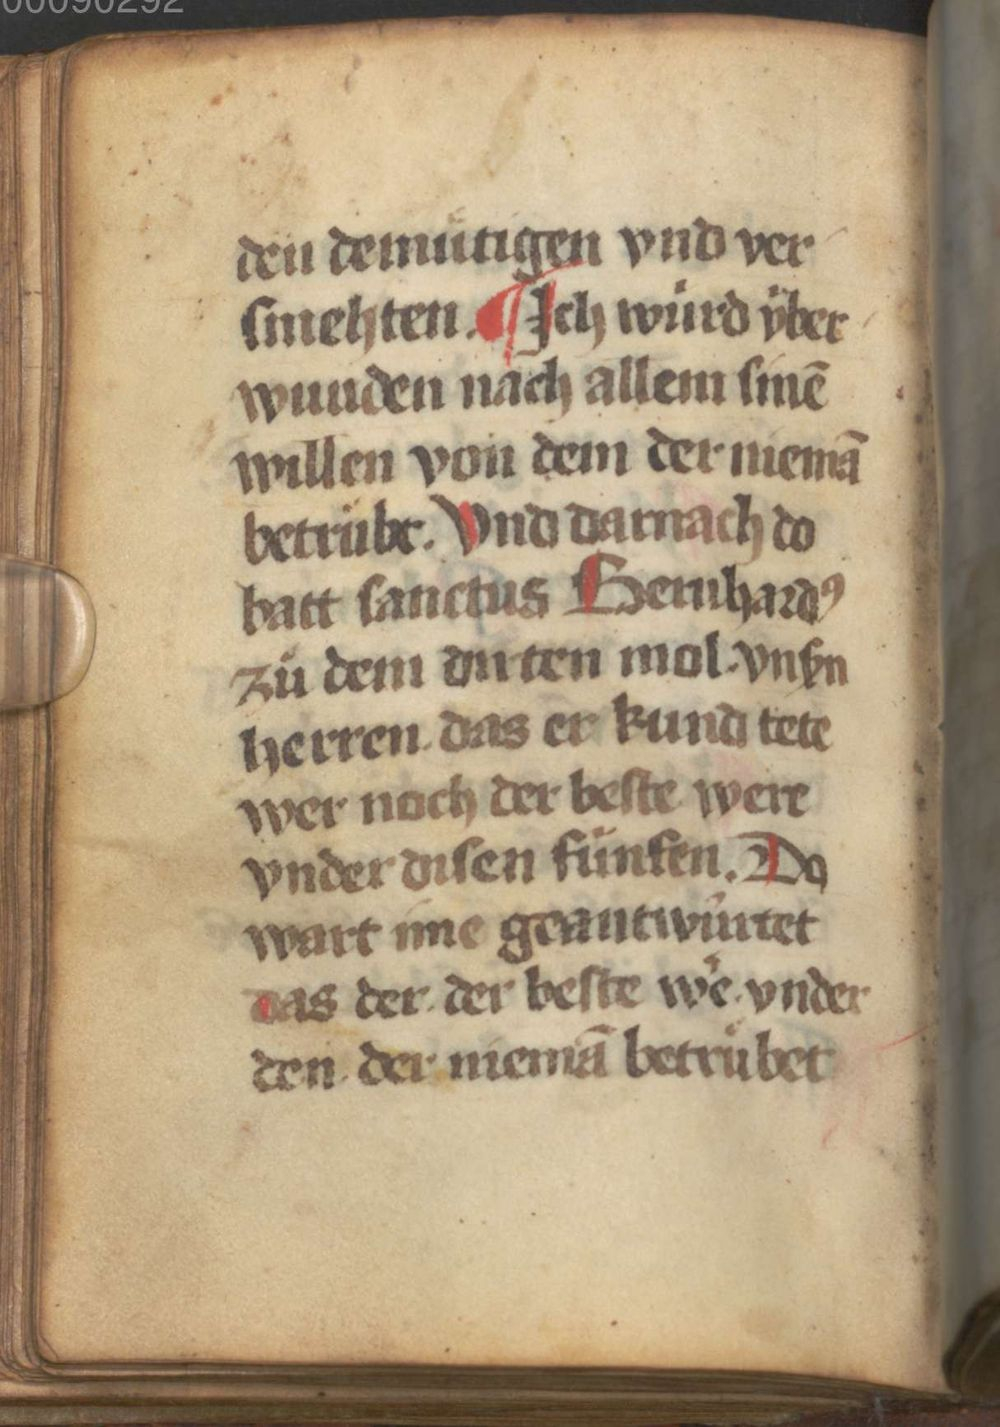 00090292
den demütigen vnd ver
smehten. ¶ Ich würd v̈ber
wunden nach allem sinē
willen von dem der niemā
betrübt. Vnd darnach do
batt sanctus Bernhardꝰ
zů dem driten mol vnsn
herren das er kund tete
wer noch der beste were
vnder disen fünfen. Do
wart ime geantwürtet
das der der beste we͛ vnder
den der niemā betrübet